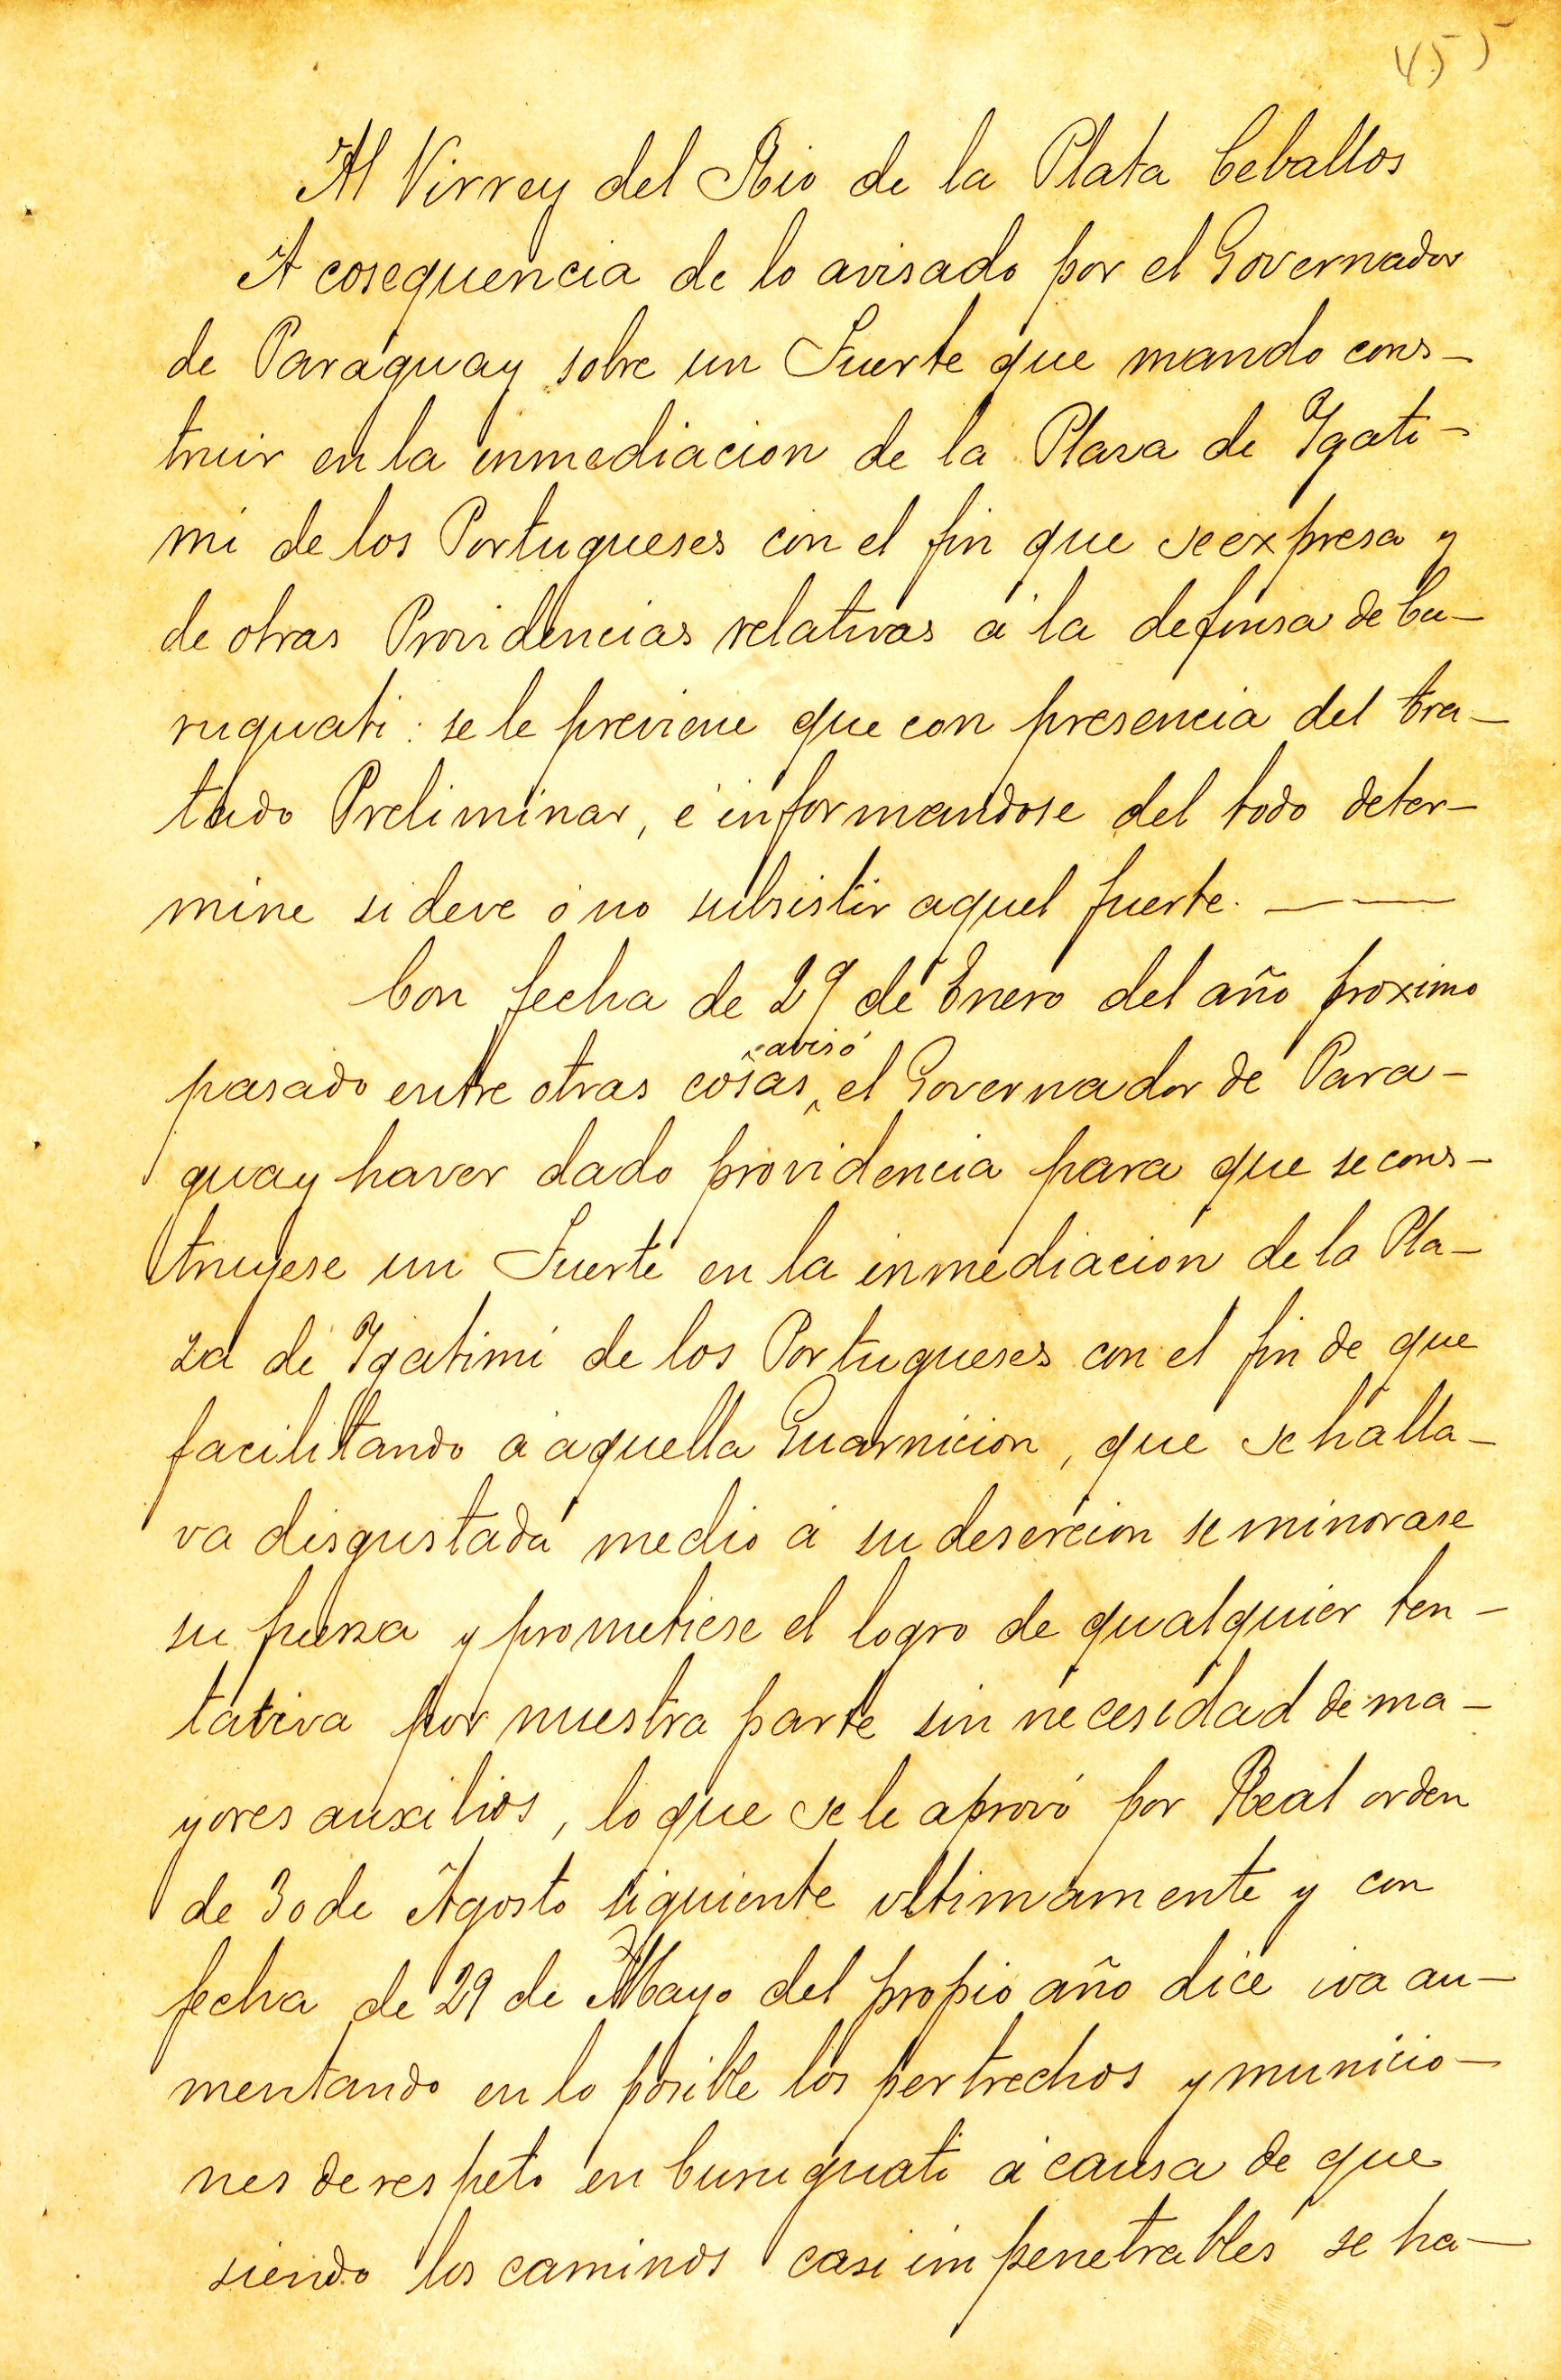 455
Al Virrey del Rio de la Plata Ceballos
A cosequencia de lo avisado por el Governador
de Paraguay sobre un Fuerte que mando cons-
truir en la inmediacion de la Plaza de Ygati-
mi de los Portugueses con el fin que se expresa y
de otras Providencias relativas á la defensa de Cu-
ruguati: se le previene que con presencia del tra-
tado Preliminar, é informandose del todo deter-
mine si deve ó no subsistir aquel fuerte. — —
Con fecha de 29 de Enero del año proximo
avisó
pasado entre otras cosas, el Governador de Para-
guay haver dado providencia para que se cons-
truyese un Fuerte en la inmediacion de la Pla-
za de Ygatimi de los Portugueses con el fin de que
facilitando á aquella Guarnicion, que se halla-
va disgustada medio á su desercion se minorase
su fuerza y prometiese el logro de qualquier ten-
tativa por nuestra parte sin necesidad de ma-
yores auxilios, lo que se le aprovó por Real orden
de 30 de Agosto siguiente ultimamente y con
fecha de 29 de Mayo del propio año dice iva au-
mentando en lo posible los pertrechos y municio-
nes de respeto en Curuguati á causa de que
siendo los caminos casi impenetrables se ha-